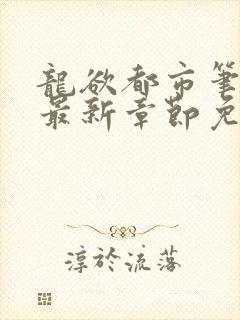 龍欲都市筆
最新章節免
淳於流落